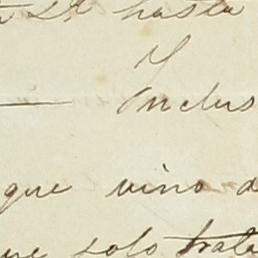 hasta
Y
Inclus
que vino d
ue solo trata